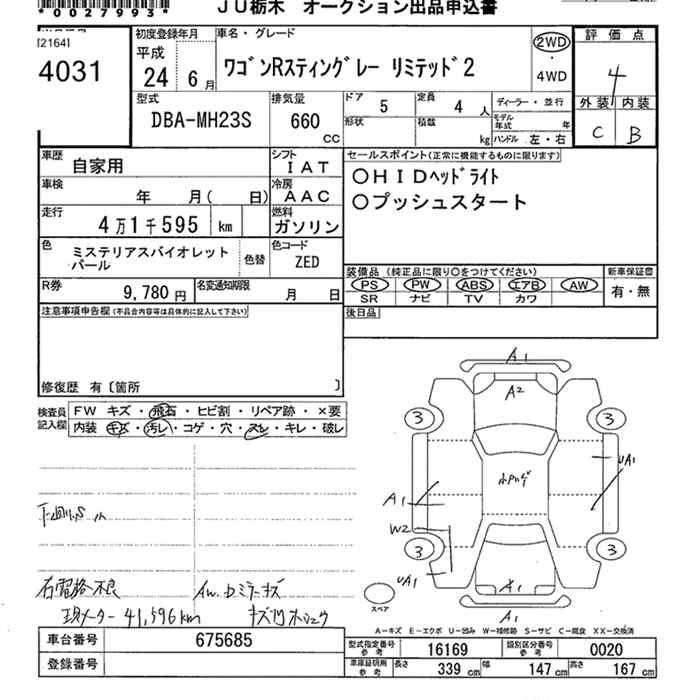 *0027993*
JU栃木 オークション出品申込書
[2164]
4031
初度登録年月
平成
24年 6月
車名・グレード
ワゴンRスティングレー リミテッド2
2WD
・
4WD
評価点
4
外装 内装
C B
型式
DBA-MH23S
排気量
660 CC
ドア 5
定員 4 人
ディーラー・並行
形状
積載 kg
モデル年式 年
ハンドル 左・右
車歴 自家用
シフト IAT
車検 年 月( 日)
冷房 AAC
走行 4万1千595 km
燃料 ガソリン
色 ミステリアスバイオレットパール
色替
色コード ZED
R券 9,780 円
名変通知期限 月 日
セールスポイント(正常に機能するものに限ります)
○HIDヘッドライト
○プッシュスタート
装備品(純正品に限り○をつけてください)
新車保証書
PS PW ABS エアB AW
SR ナビ TV カワ
有・無
後日品
注意事項申告欄(不具合内容等は具体的に記入して下さい)
修復歴 有〔箇所 〕
検査員記入欄
FW キズ・飛石・ヒビ割・リペア跡・×要
内装 キズ・汚レ・コゲ・穴・スレ・キレ・破レ
下回りS小
右電格不良
AW.Dミラーキズ
現メーター 41,596km
A1
A2
3
3
UA1
A1
W2
3
3
UA1
A1
A1
スペア
A-キズ E-エクボ U-凹み W-補修跡 S-サビ C-腐食 XX-交換済
車台番号 675685
登録番号
型式指定番号参考 16169
類別区分番号参考 0020
車庫証明用参考
長さ 339 cm
幅 147 cm
高さ 167 cm